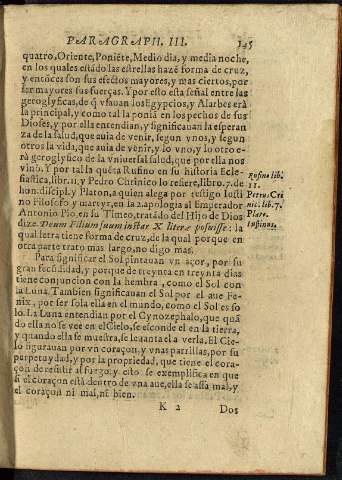 PARAGRAPH. III. 145
quatro, Oriente, Poniẽte, Medio dia, y media noche,
en los quales estãdo las estrellas hazẽ forma de cruz,
y entõces son sus efectos mayores, y mas ciertos, por
ser mayores sus fuerças. Y por esto esta señal entre las
geroglyficas, de q̃ vsauan los Egypcios, y Alarbes erã
la principal, y como tal la poniã en los pechos de sus
Dioses, y por ella entendian, y significauan la esperan
za de la salud, que auia de venir, segun vnos, y segun
otros la vida, que auia de venir, y lo vno, y lo otro e-
rã geroglyfico de la vniuersal salud, que por ella nos
vino. Y por tal la quẽta Rufino en su historia Ecle-
siastica, lib. 11, y Pedro Chrinito lo refiere, lib. 7. de
hon. discipl. y Platon, a quien alega por testigo Iusti
no Filosofo y martyr, en la 2. apologia al Emperador
Antonio Pio, en su Timeo, tratãdo del Hijo de Dios
dize. Deum Filium suum instar X literæ posuisse: la
qual letra tiene forma de cruz, de la qual porque en
otra parte trato mas largo, no digo mas.
Rufino lib.
11.
Petru. Cri
nit. lib. 7.
Plato.
Iustinos.
Para significar el Sol pintauan vn açor, por su
gran fecũdidad, y porque de treynta en treynta dias
tiene conjuncion con la hembra, como el Sol con
la Luna. Tambien significauan el Sol por el aue Fe-
nix, por ser sola ella en el mundo, como el Sol es so
lo. La Luna entendian por el Cynozephalo, que quã
do ella no se vee en el Cielo, se esconde el en la tierra,
y quando ella se muestra, se leuanta el a verla. El Cie-
lo figurauan por vn coraçon, y vnas parrillas, por su
perpetuydad, y por la propriedad, que tiene el cora-
çon de resistir al fuego, y esto se exemplifica en que
si el coraçon està dentro de vna aue, ella se assa mal, y
el coraçon ni mal, ni bien.
K 2 Dos